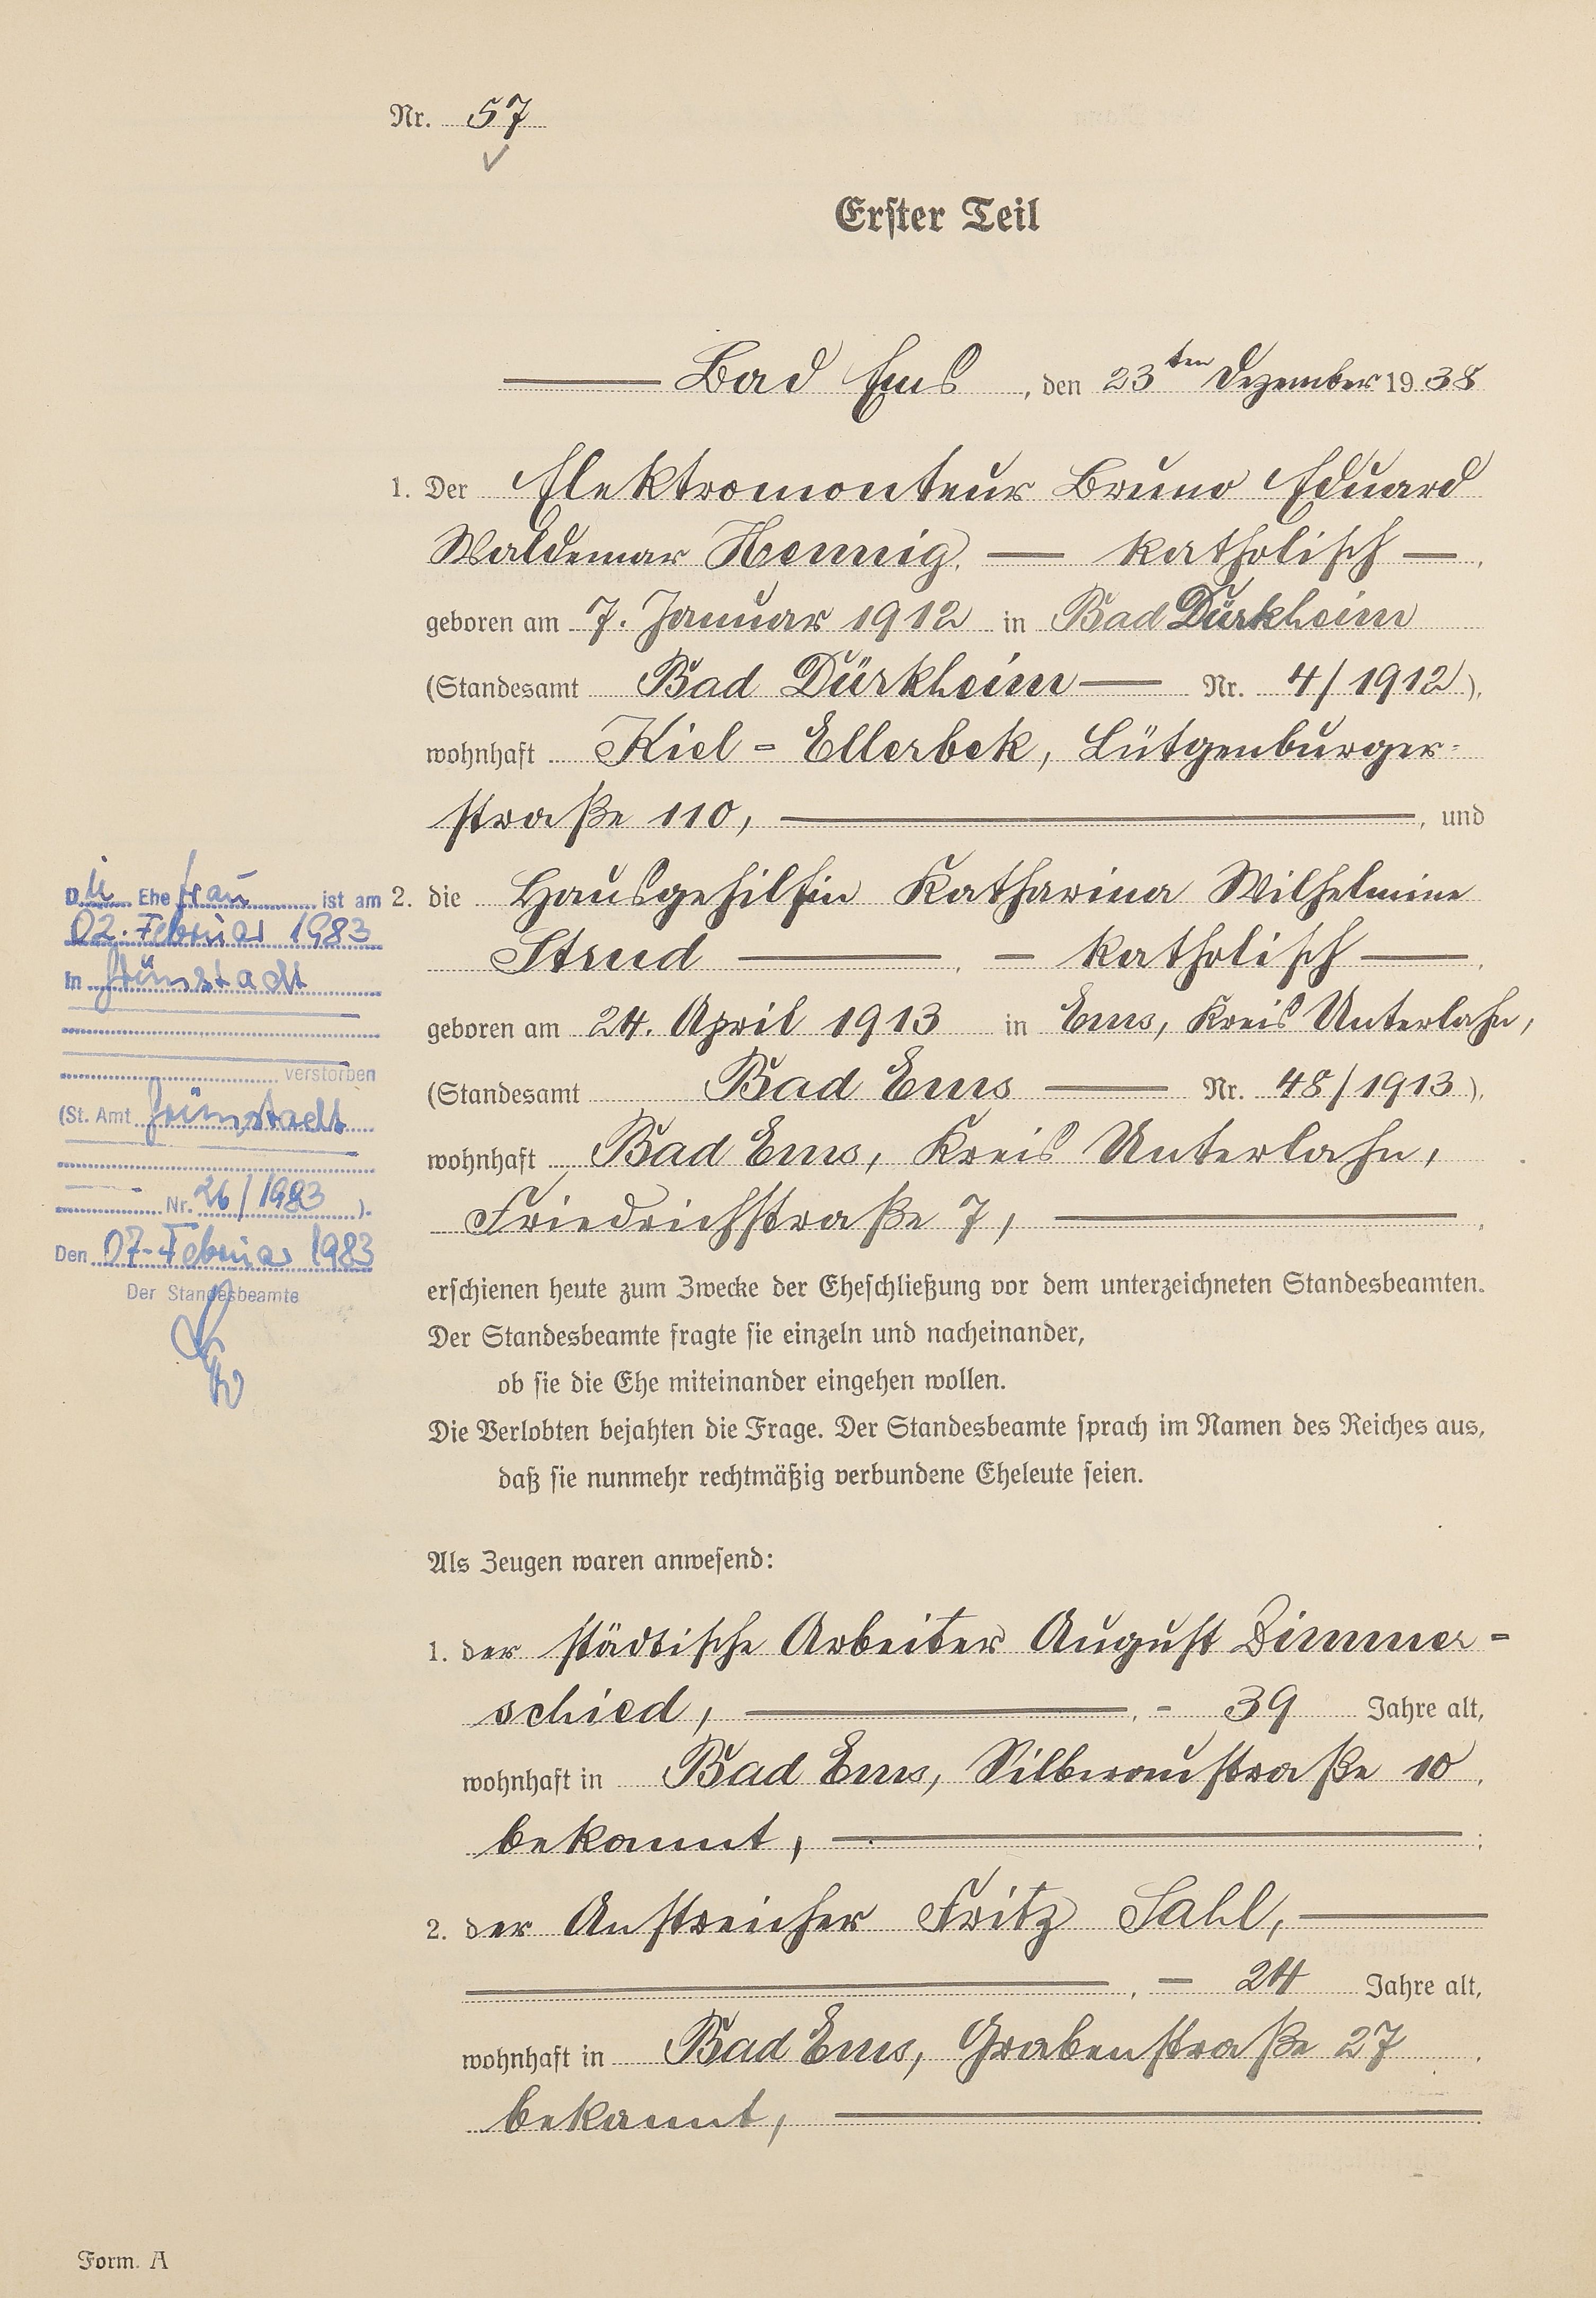 Nr. 57
Erster Teil
Bad Ems, den 23ten Dezember 1938
1. Der Elektromonteur Bruno Eduard
Waldemar Hennig, — katholisch —,
geboren am 7. Januar 1912 in Bad Dürkheim
(Standesamt Bad Dürkheim — Nr. 4/1912),
wohnhaft Kiel-Ellerbek, Lütgenburger-
straße 110, —, und
2. die Hausgehilfin Katharina Wilhelmine
Strud —, — katholisch —,
geboren am 24. April 1913 in Ems, Kreis Unterlahn,
(Standesamt Bad Ems — Nr. 48/1913),
wohnhaft Bad Ems, Kreis Unterlahn,
Friedrichstraße 7, —,
erschienen heute zum Zwecke der Eheschließung vor dem unterzeichneten Standesbeamten.
Der Standesbeamte fragte sie einzeln und nacheinander,
ob sie die Ehe miteinander eingehen wollen.
Die Verlobten bejahten die Frage. Der Standesbeamte sprach im Namen des Reiches aus,
daß sie nunmehr rechtmäßig verbundene Eheleute seien.
Als Zeugen waren anwesend:
1. der städtische Arbeiter August Dimmer-
schied, —, - 39 Jahre alt,
wohnhaft in Bad Ems, Silberaustraße 10,
bekannt, —;
2. der Anstreicher Fritz Sahl, —
—, — 24 Jahre alt,
wohnhaft in Bad Ems, Grabenstraße 27,
bekannt, —.
Die Ehefrau ist am
02. Februar 1983
in Grünstadt
verstorben
(St. Amt Grünstadt
Nr. 26/1983).
Den 07. Februar 1983
Der Standesbeamte
Form. A